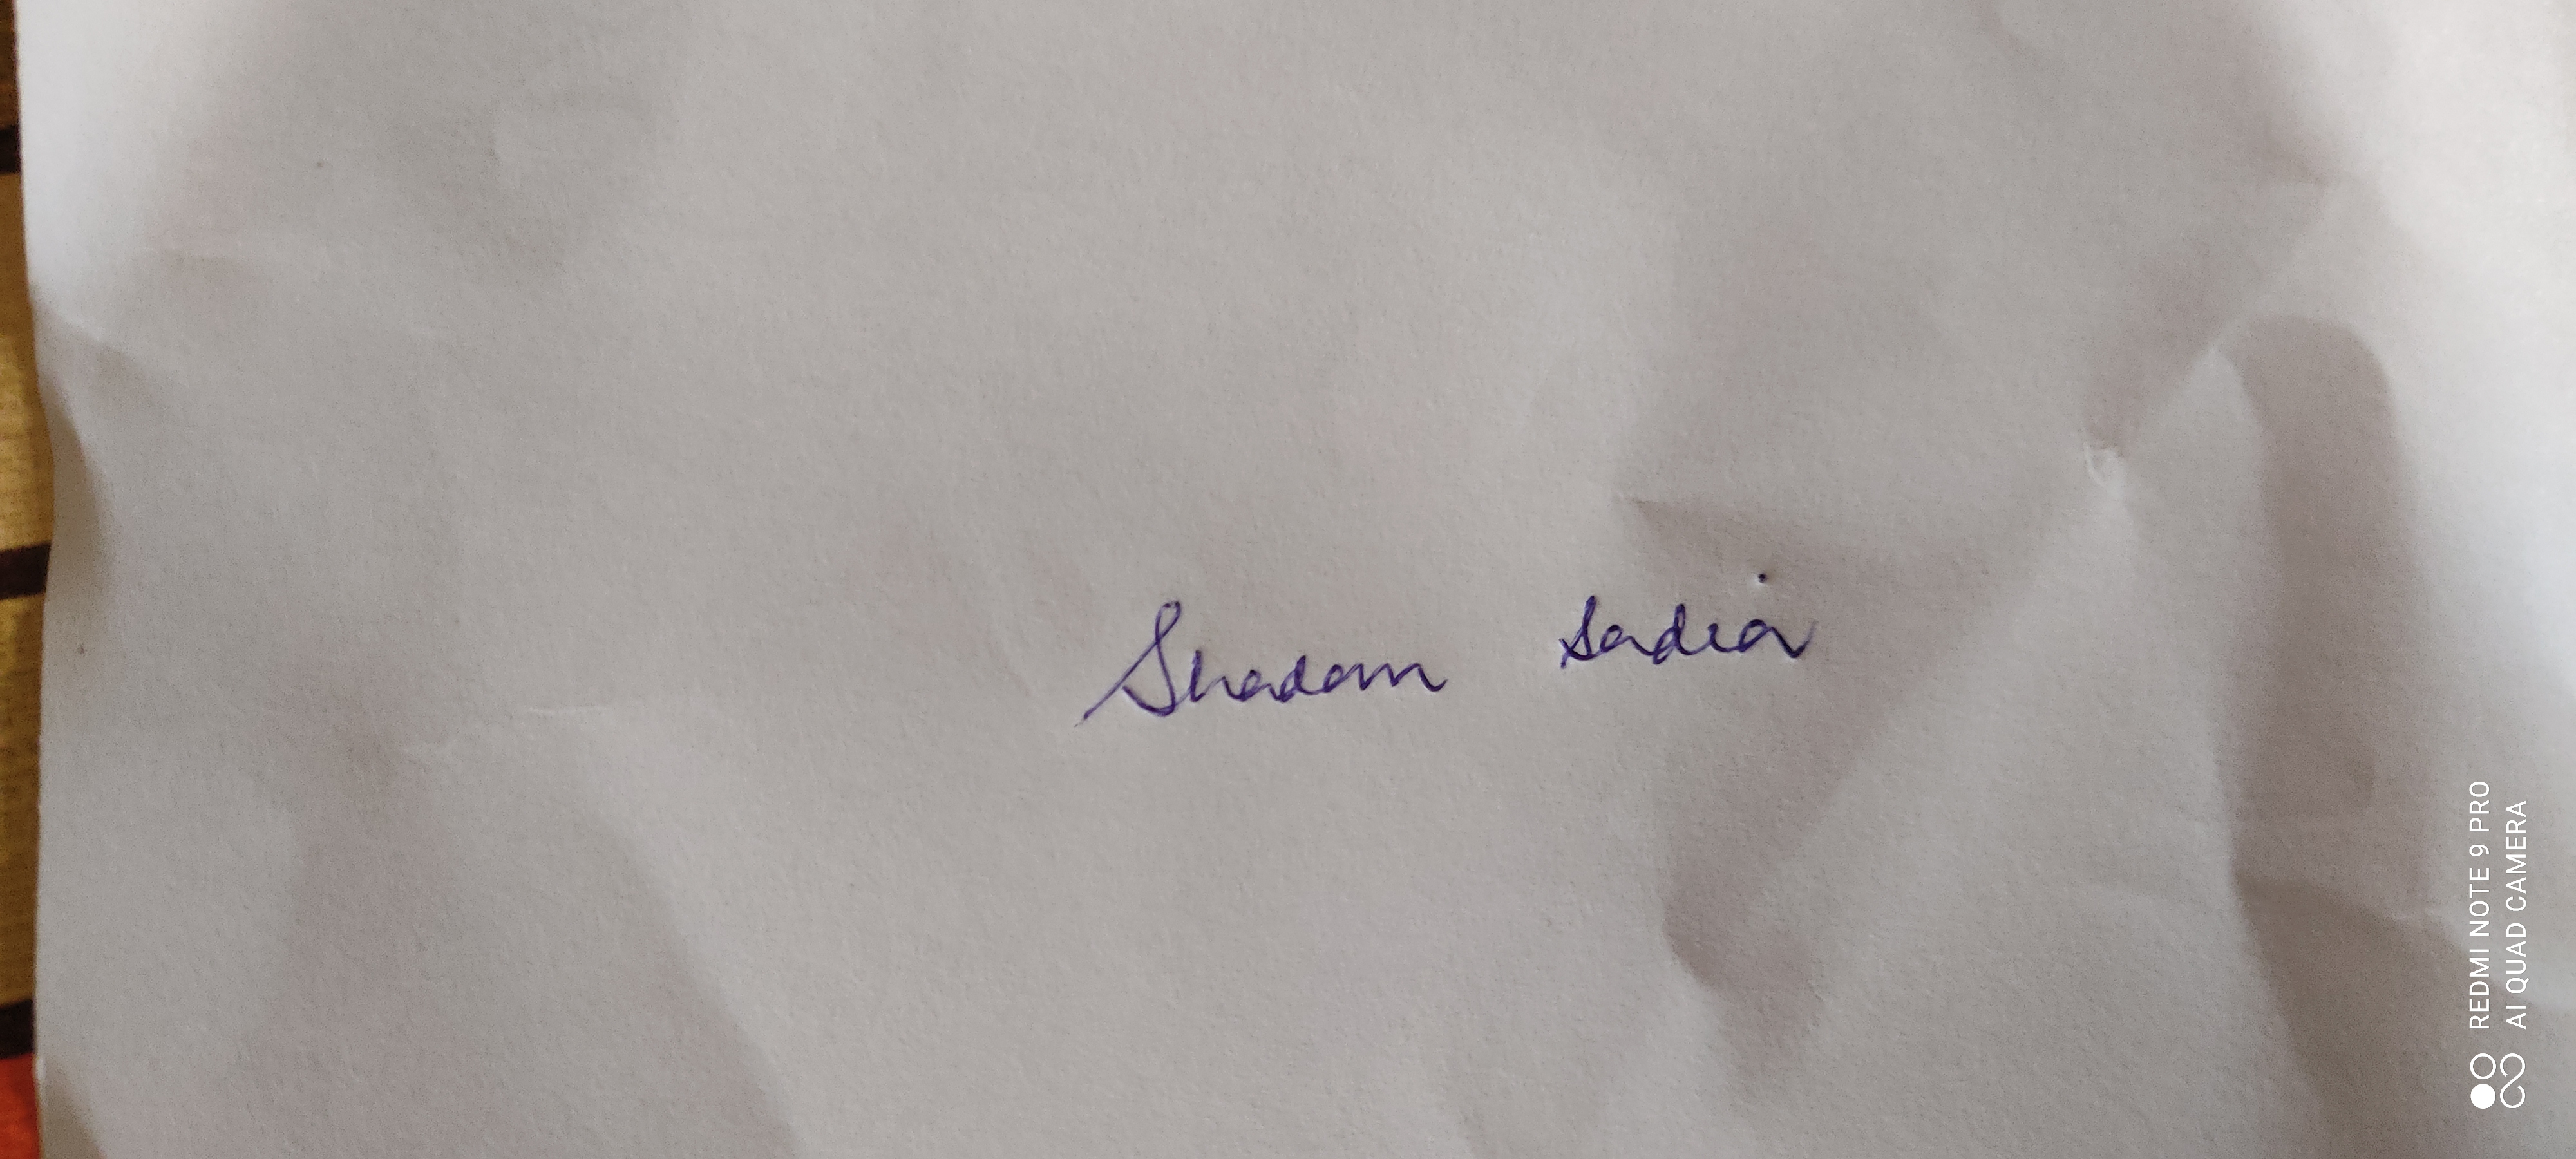 Shadam Sadia
REDMI NOTE 9 PRO
AI QUAD CAMERA